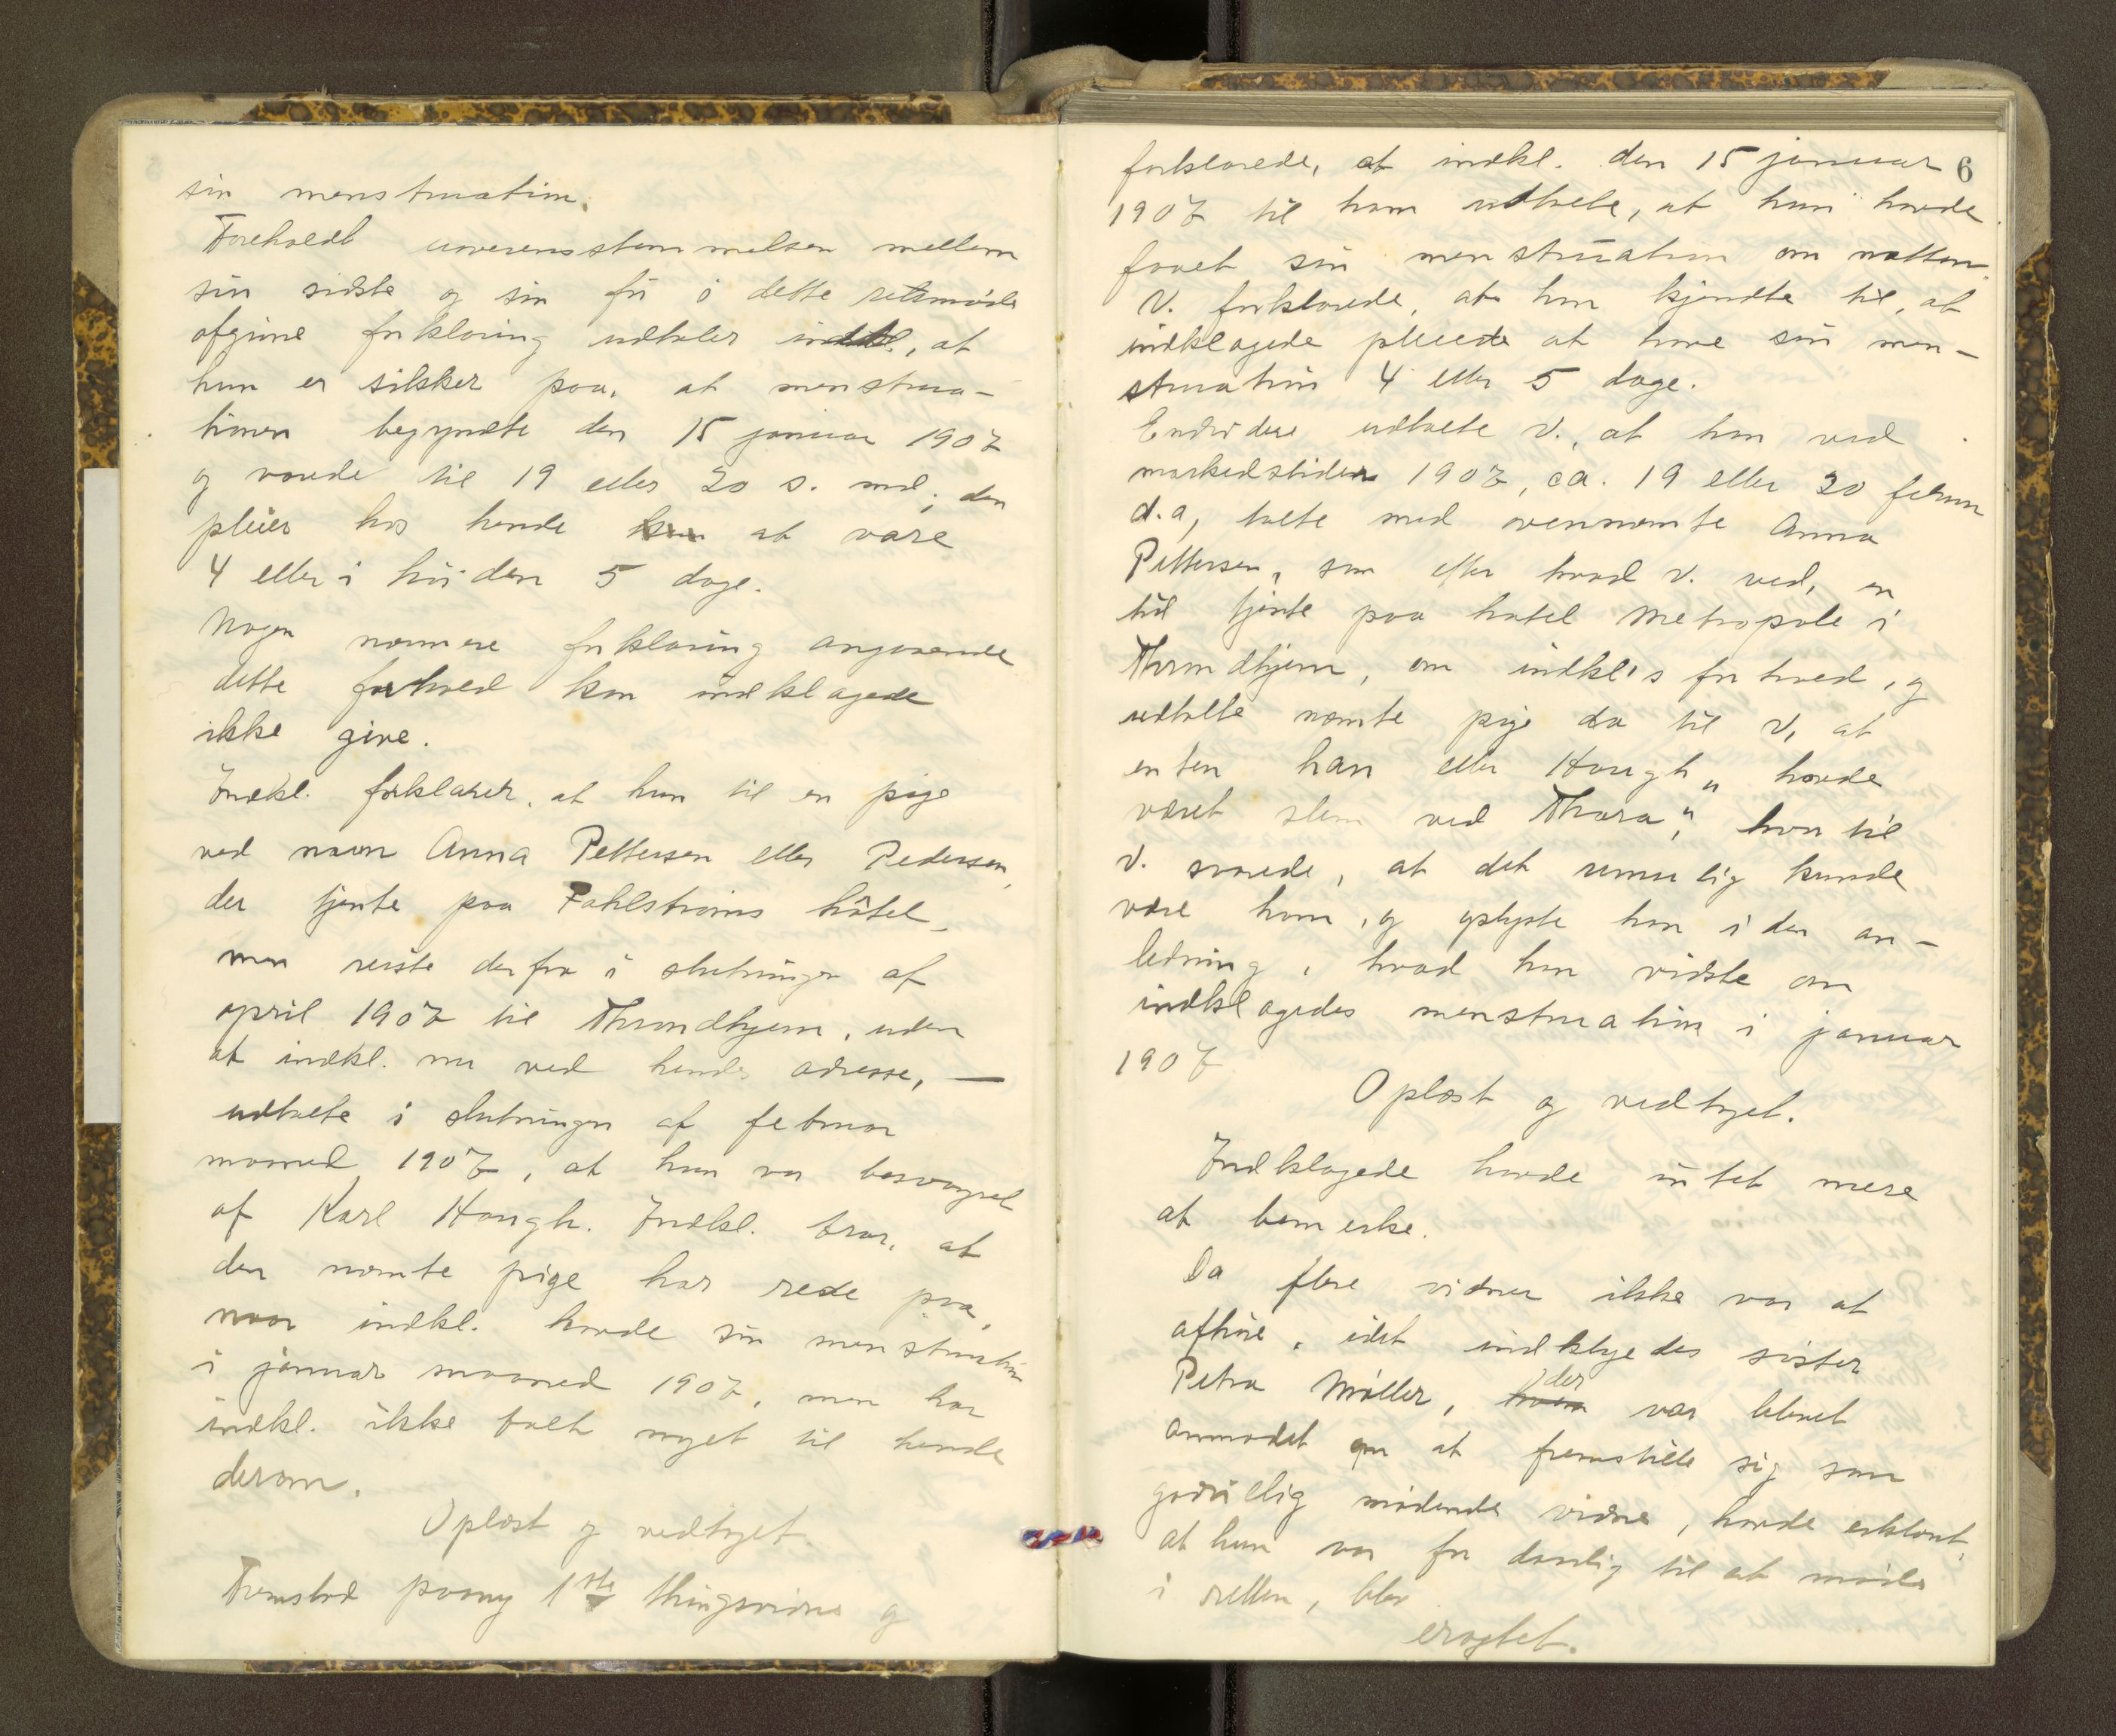 sin menstruation.
Foreholdt uoverensstemmelsen mellem
sin sidste og sin før i dette retsmøde
afgivne forklaring udtaler indkl., at
hun er sikker paa, at menstrua-
tionen begyndte den 15 januar 1907
og varede til 19 eller 20 s. md.; den
pleier hos hende at vare
4 eller i høiden 5 dage.
Nogen nærmere forklaring angaaende
dette forhold kan indklagede
ikke give.
Indkl. forklarer, at hun til en pige
ved navn Anna Pettersen eller Pedersen,
der tjente paa Fahlstrøms hôtel,
men reiste derfra i slutningen af
april 1907 til Throndhjem, uden
at indkl. nu ved hendes adresse, —
udtalte i slutningen af februar
maaned 1907, at hun var besvangret
af Karl Hough. Indkl. tror, at
den nævnte pige har rede paa,
naar indkl. havde sin menstruation
i januar maaned 1907, men har
indkl. ikke talt noget til hende
derom.
Oplæst og vedtaget.
Fremstod paany 1ste thingsvidne og
6
forklarede, at indkl. den 15 januar
1907 til ham udtalte, at hun havde
faaet sin menstruation om natten.
V. forklarede, at han kjendte til, at
indklagede pleiede at have sin men-
struation 4 eller 5 dage.
Endvidere udtalte V., at han ved
markedstiden 1907, ca. 19 eller 20 februar
d.a., talte med ovennævnte Anna
Pettersen, som efter hvad V. ved, er
til tjente paa hotel Metropole i
Throndhjem, om indkl's forhold, og
udtalte nævnte pige da til V, at
enten han eller Hough „havde
været slem ved Thora“, hvortil
V. svarede, at det umulig kunde
være ham, og oplyste han i den an-
ledning, hvad han vidste om
indklagedes menstruation i januar
1907
Oplæst og vedtaget.
Indklagede havde intet mere
at bemerke.
Da flere vidner ikke var at
afhøre, idet indklagedes søster
Petra Møller, hvem der var blevet
anmodet om at fremstille sig som
godvillig mødende vidne, havde erklæret,
at hun var for daarlig til at møde
i retten, blev
eragtet.